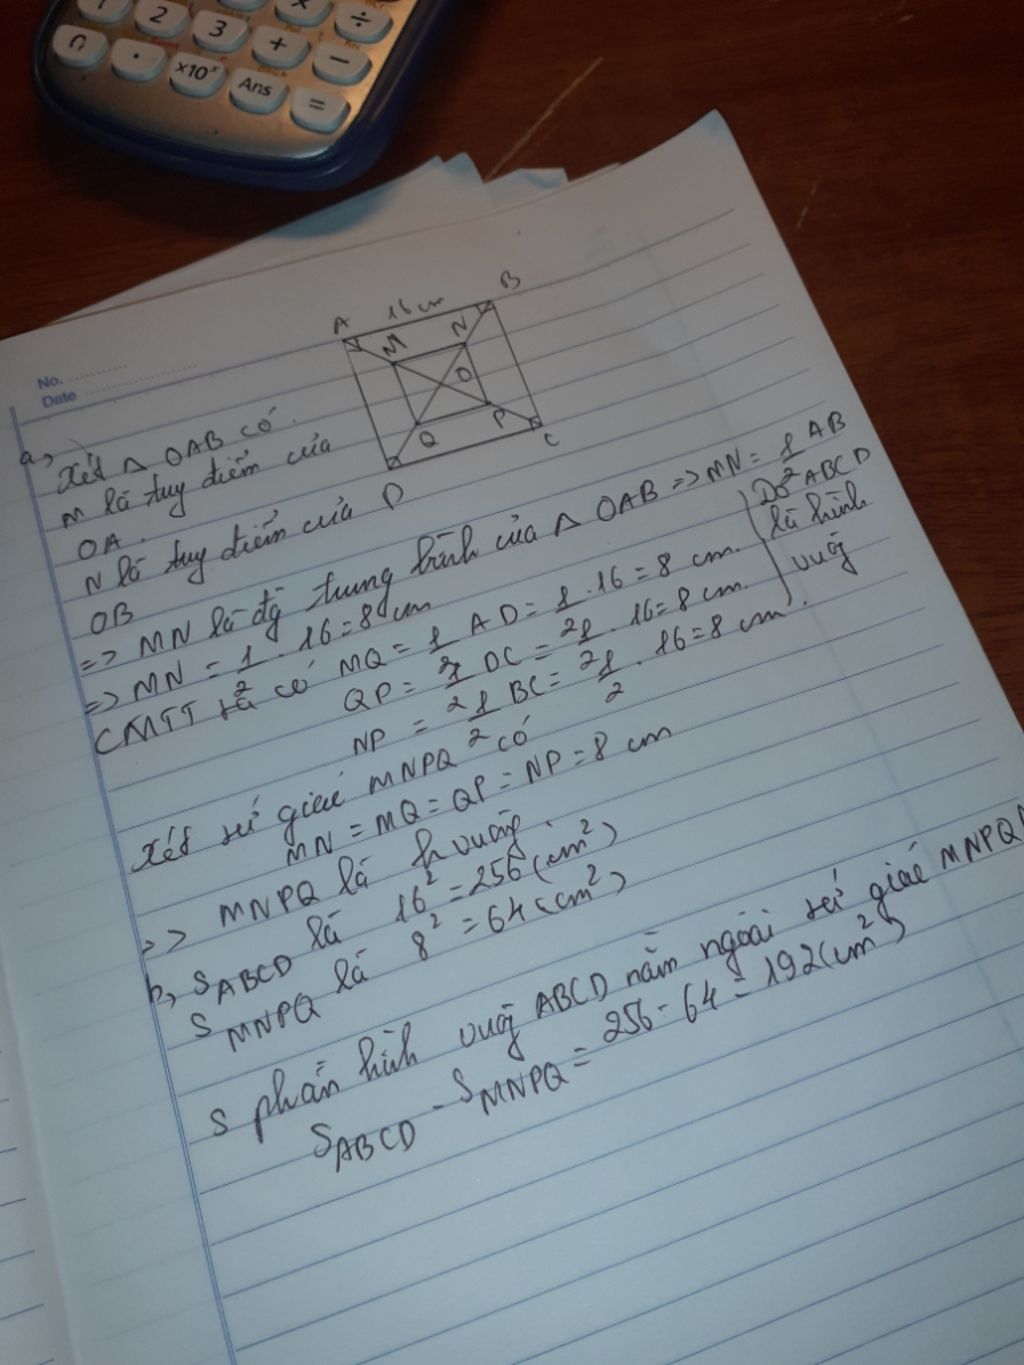 1 2 3 + × ÷ −
∩ . ×10ˣ Ans =
No. ............
Date ............
A 16 cm B
M N
O
Q P
D C
a,
Xét Δ OAB có.
M là tuy điểm của
OA.
N là tuy điểm của
OB
=> MN là đg trung bình của Δ OAB => MN = 1/2 AB
=> MN = 1/2 . 16 = 8 cm
CMTT ta có MQ = 1/2 AD = 1/2 . 16 = 8 cm.
QP = 1/2 DC = 1/2 . 16 = 8 cm.
NP = 1/2 BC = 1/2 . 16 = 8 cm.
Do ABCD
là hình
vuôg
Xét tứ giác MNPQ có
MN = MQ = QP = NP = 8 cm
=> MNPQ là h vuông.
b, S ABCD là 16² = 256 (cm²)
S MNPQ là 8² = 64 (cm²)
S phần hình vuôg ABCD nằm ngoài tứ giác MNPQ
S ABCD - S MNPQ = 256 - 64 = 192 (cm²)